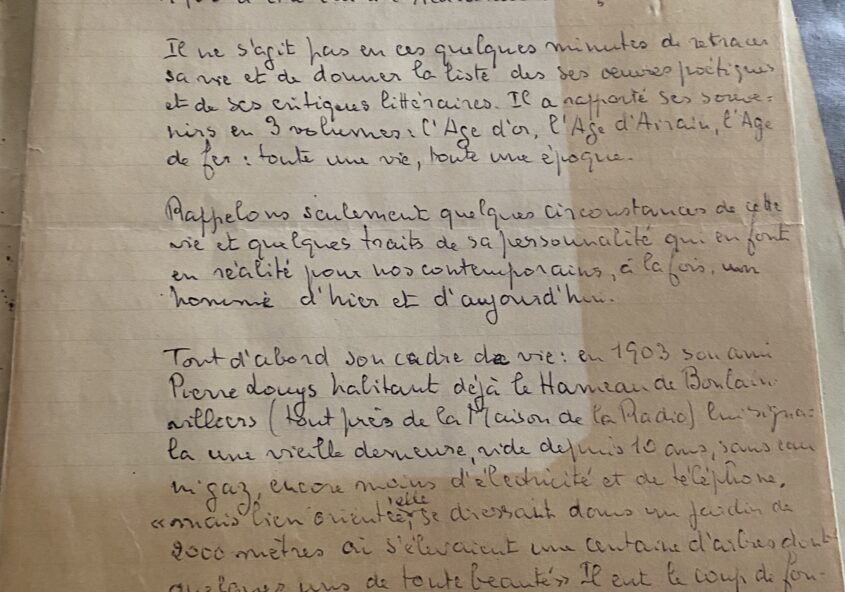 Il ne s'agit pas en ces quelques minutes de retracer
sa vie et de donner la liste des ses œuvres poétiques
et de ses critiques littéraires. Il a rapporté ses souve-
nirs en 3 volumes : l'Age d'or, l'Age d'Airain, l'Age
de fer : toute une vie, toute une époque.
Rappelons seulement quelques circonstances de cette
vie et quelques traits de sa personnalité qui en font
en réalité pour nos contemporains, à la fois, un
homme d'hier et d'aujourd'hui.
Tout d'abord son cadre de vie : en 1903 son ami
Pierre Louys habitant déjà le Hameau de Boulain-
villiers (tout près de la Maison de la Radio) lui signa-
la une vieille demeure, vide depuis 10 ans, sans eau
ni gaz, encore moins d'électricité et de téléphone,
« mais bien orientée, elle se dressait dans un jardin de
2000 mètres où s'élevaient une centaine d'arbres dont
quelques uns de toute beauté » Il eut le coup de fou-